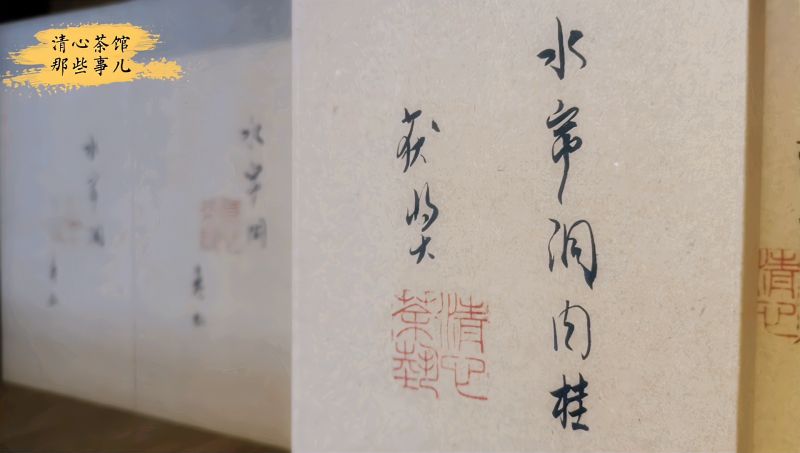 清心茶馆
那些事儿
水帘洞肉桂
获奖
清心
茶埶
水帘洞
水帘洞
清心